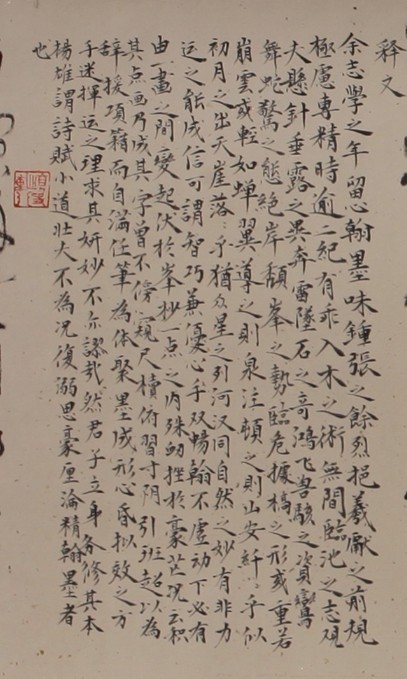 释文
余志學之年留心翰墨味鍾張之餘烈挹羲獻之前規
極慮專精時逾二紀有乖入木之術無間臨池之志观
夫懸针垂露之異奔雷墜石之奇鸿飞兽骇之資鸾
舞蛇驚之態絕岸頹峯之勢臨危據槁之形或重若
崩雲或輕如蝉翼導之則泉注頓之則山安纤〻乎似
初月之出天崖落〻乎猶众星之列河汉同自然之妙有非力
运之能成信可謂智巧兼優心手双暢翰不虚动下必有
由一畫之間变起伏於峯杪一点之内殊衂挫於豪芒况云积
其点画乃成其字曾不傍窥尺牍俯習寸阴引班超以为
辞援項籍而自满任筆為体聚墨成形心昏拟效之方
手迷揮运之理求其妍妙不亦謬哉然君子立身务修其本
楊雄謂詩賦小道壮大不為况復溺思豪厘淪精翰墨者
也